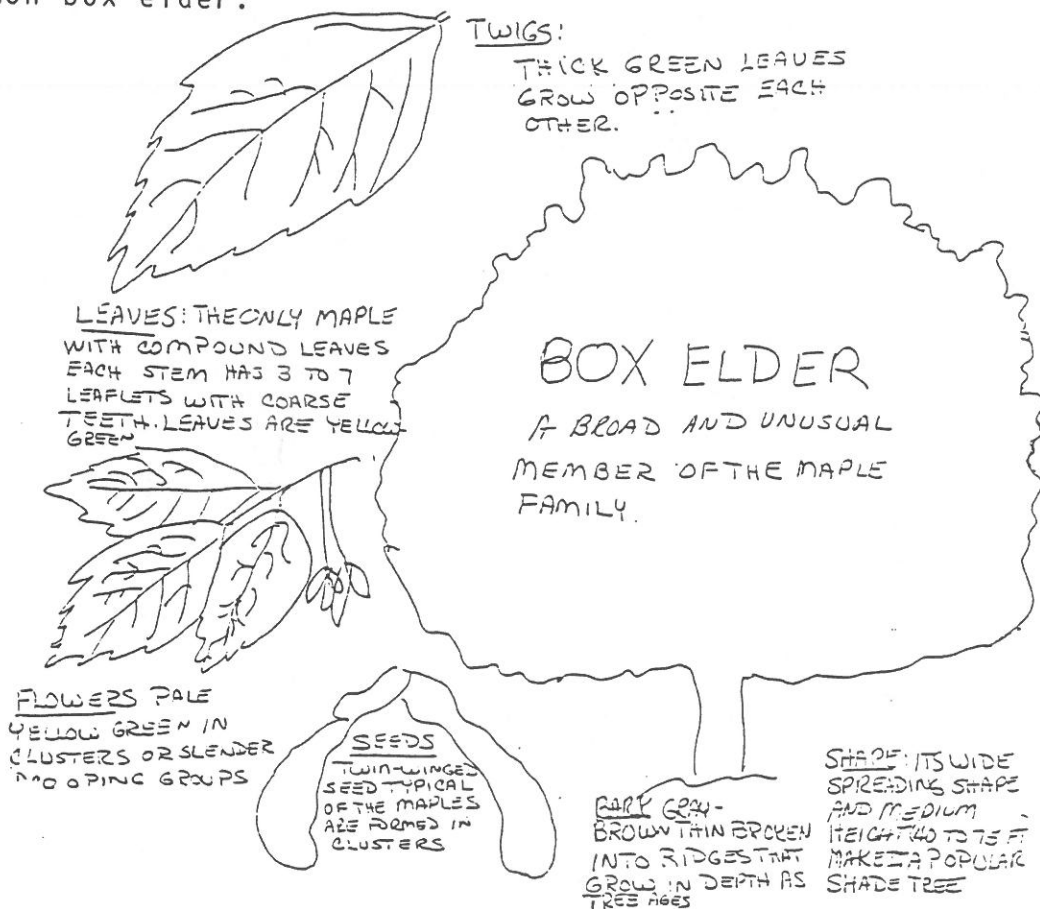 on box elder.
TWIGS:
THICK GREEN LEAVES
GROW OPPOSITE EACH
OTHER.
LEAVES: THE ONLY MAPLE
WITH COMPOUND LEAVES
EACH STEM HAS 3 TO 7
LEAFLETS WITH COARSE
TEETH. LEAVES ARE YELLOW
GREEN
BOX ELDER
A BROAD AND UNUSUAL
MEMBER OF THE MAPLE
FAMILY.
FLOWERS PALE
YELLOW GREEN IN
CLUSTERS OR SLENDER
DROOPING GROUPS
SEEDS
TWIN-WINGED
SEED TYPICAL
OF THE MAPLES
ARE FORMED IN
CLUSTERS
BARK GRAY-
BROWN THIN BROKEN
INTO RIDGES THAT
GROW IN DEPTH AS
TREE AGES
SHAPE: ITS WIDE
SPREADING SHAPE
AND MEDIUM
HEIGHT 40 TO 75 FT
MAKE IT A POPULAR
SHADE TREE